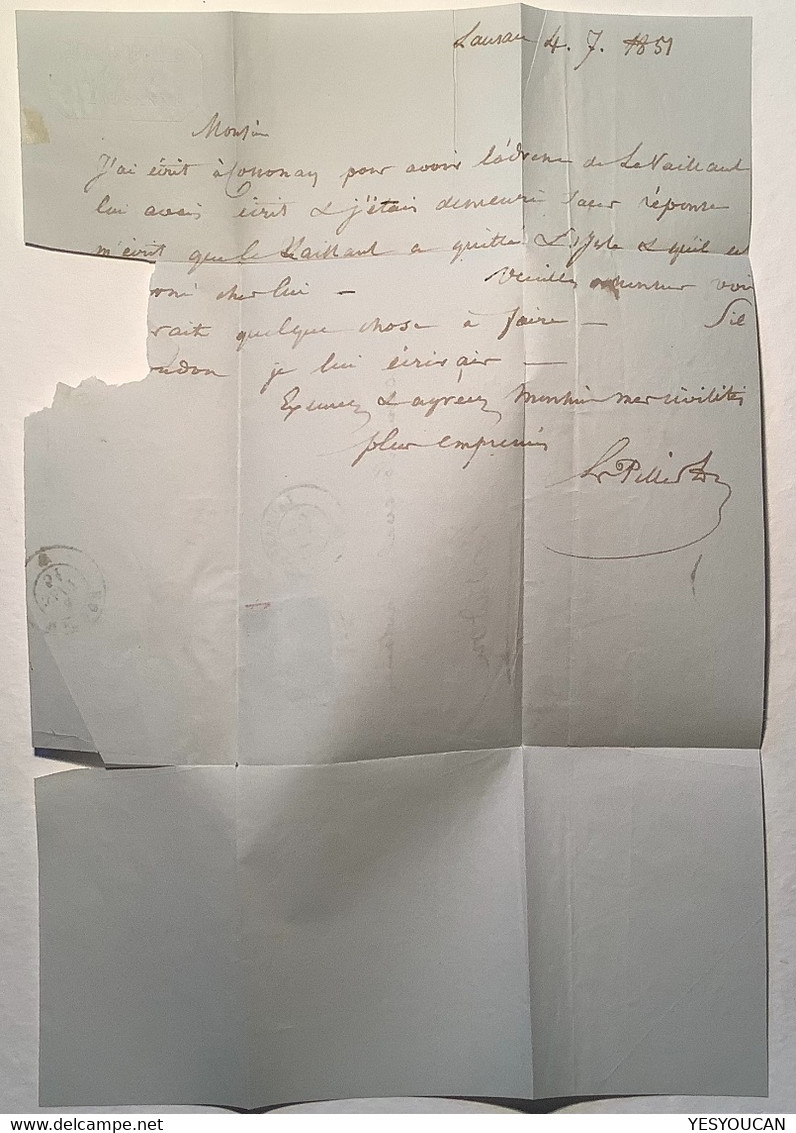 Lausan 4. 7. 1851
Monsieur
J'ai écrit à Cossonay pour avoir l'adresse de Le Vaillant
lui avais écrit & j'étais demeuré sans réponse
m'écrit que le Vaillant a quitté L'Isle & qu'il est
rné chez lui — Veuillez monsieur voir
rait quelque chose à faire — Sil
udon je lui écrirair —
Excusez & agreez Monsieur mes civilités
plus empressées
YESYOUCAN